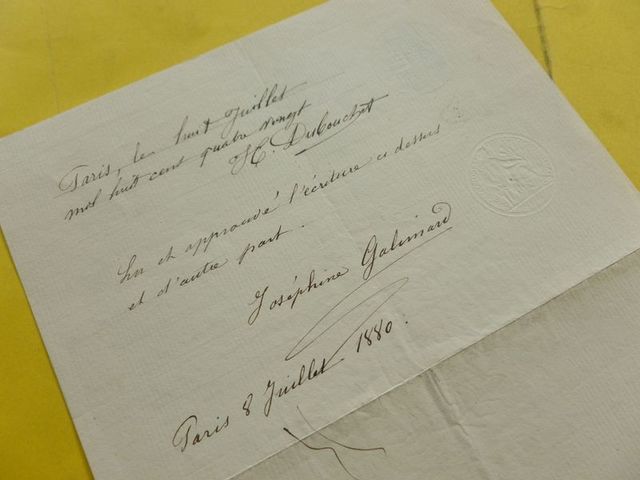 Paris, le huit Juillet
mil huit cent quatre vingt
H. Dubouchet
Lu et approuvé l'écriture ci dessus
et d'autre part.
Joséphine Galimard
Paris 8 Juillet 1880.